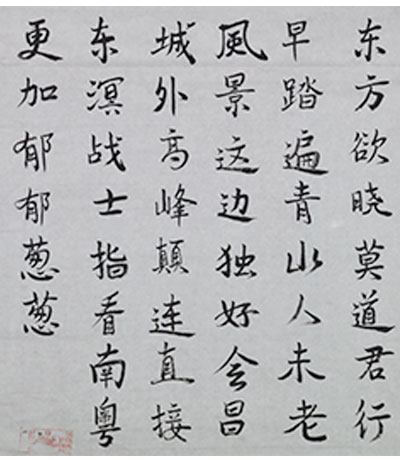 东方欲晓莫道君行
早踏遍青山人未老
風景这边独好会昌
城外高峰顛连直接
东溟战士指看南粤
更加郁郁葱葱